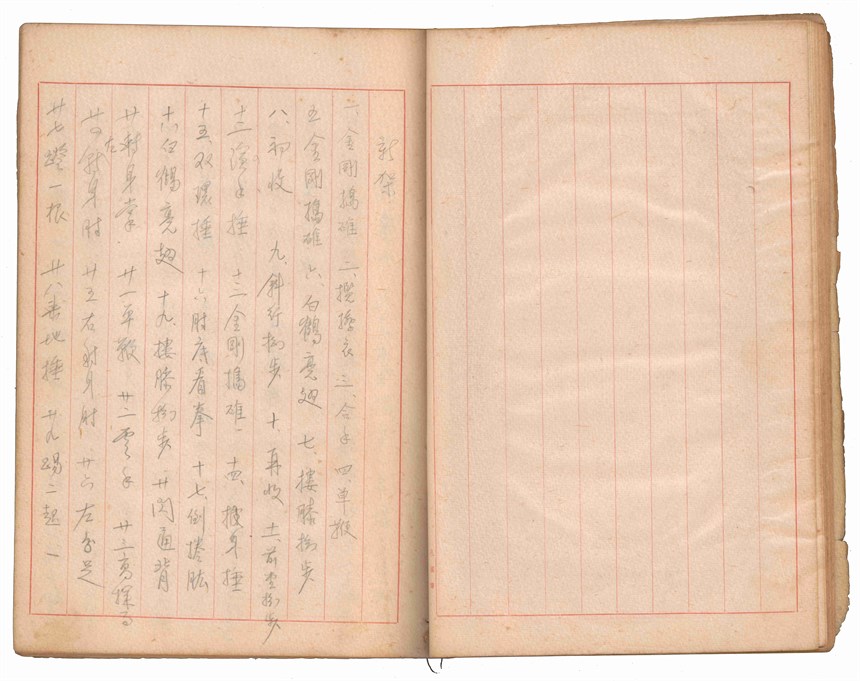 新架
一、金剛搗碓 二、攬擦衣 三、合手 四、单鞭
五、金剛搗碓 六、白鶴亮翅 七、摟膝拗步
八、初收 九、斜行拗步 十、再收 十一、前堂拗步
十二、演手捶 十三金剛搗碓 十四、披身捶
十五、双環捶 十六肘底看拳 十七倒捲肱
十八白鶴亮翅 十九、摟膝拗步 廿閃通背
身掌 廿一单鞭 廿二雲手 廿三高探馬
身肘 廿五右 身肘 廿六左分足
廿七蹬一根 廿八 地捶 廿九踢二起